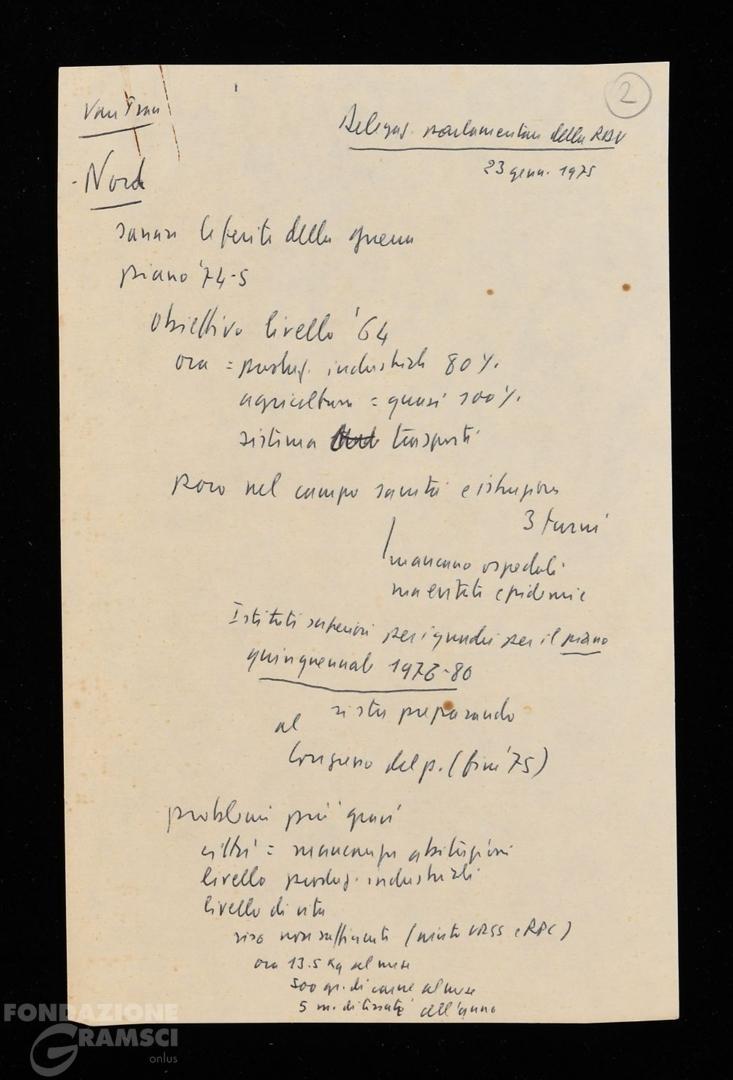 2
Van Tran
Delegaz. parlamentare della RDV
23 genn. 1975
- Nord
sanare le ferite della guerra
piano '74-5
obiettivo livello '64
ora = produz. industriale 80%
agricoltura = quasi 100%
sistema trasporti
poco nel campo sanità e istruzione
3 turni
mancano ospedali
ma evitate epidemie
Istituti superiori per i quadri per il piano
quinquennale 1976-80
si sta preparando
al
Congresso del p. (fine '75)
problemi più gravi
città = mancanza abitazioni
livello produz. industriale
livello di vita
riso non sufficiente (aiuto URSS e RPC)
ora 13.5 Kg al mese
500 gr. di carne al mese
5 m. di tessuto all'anno
FONDAZIONE
GRAMSCI
onlus